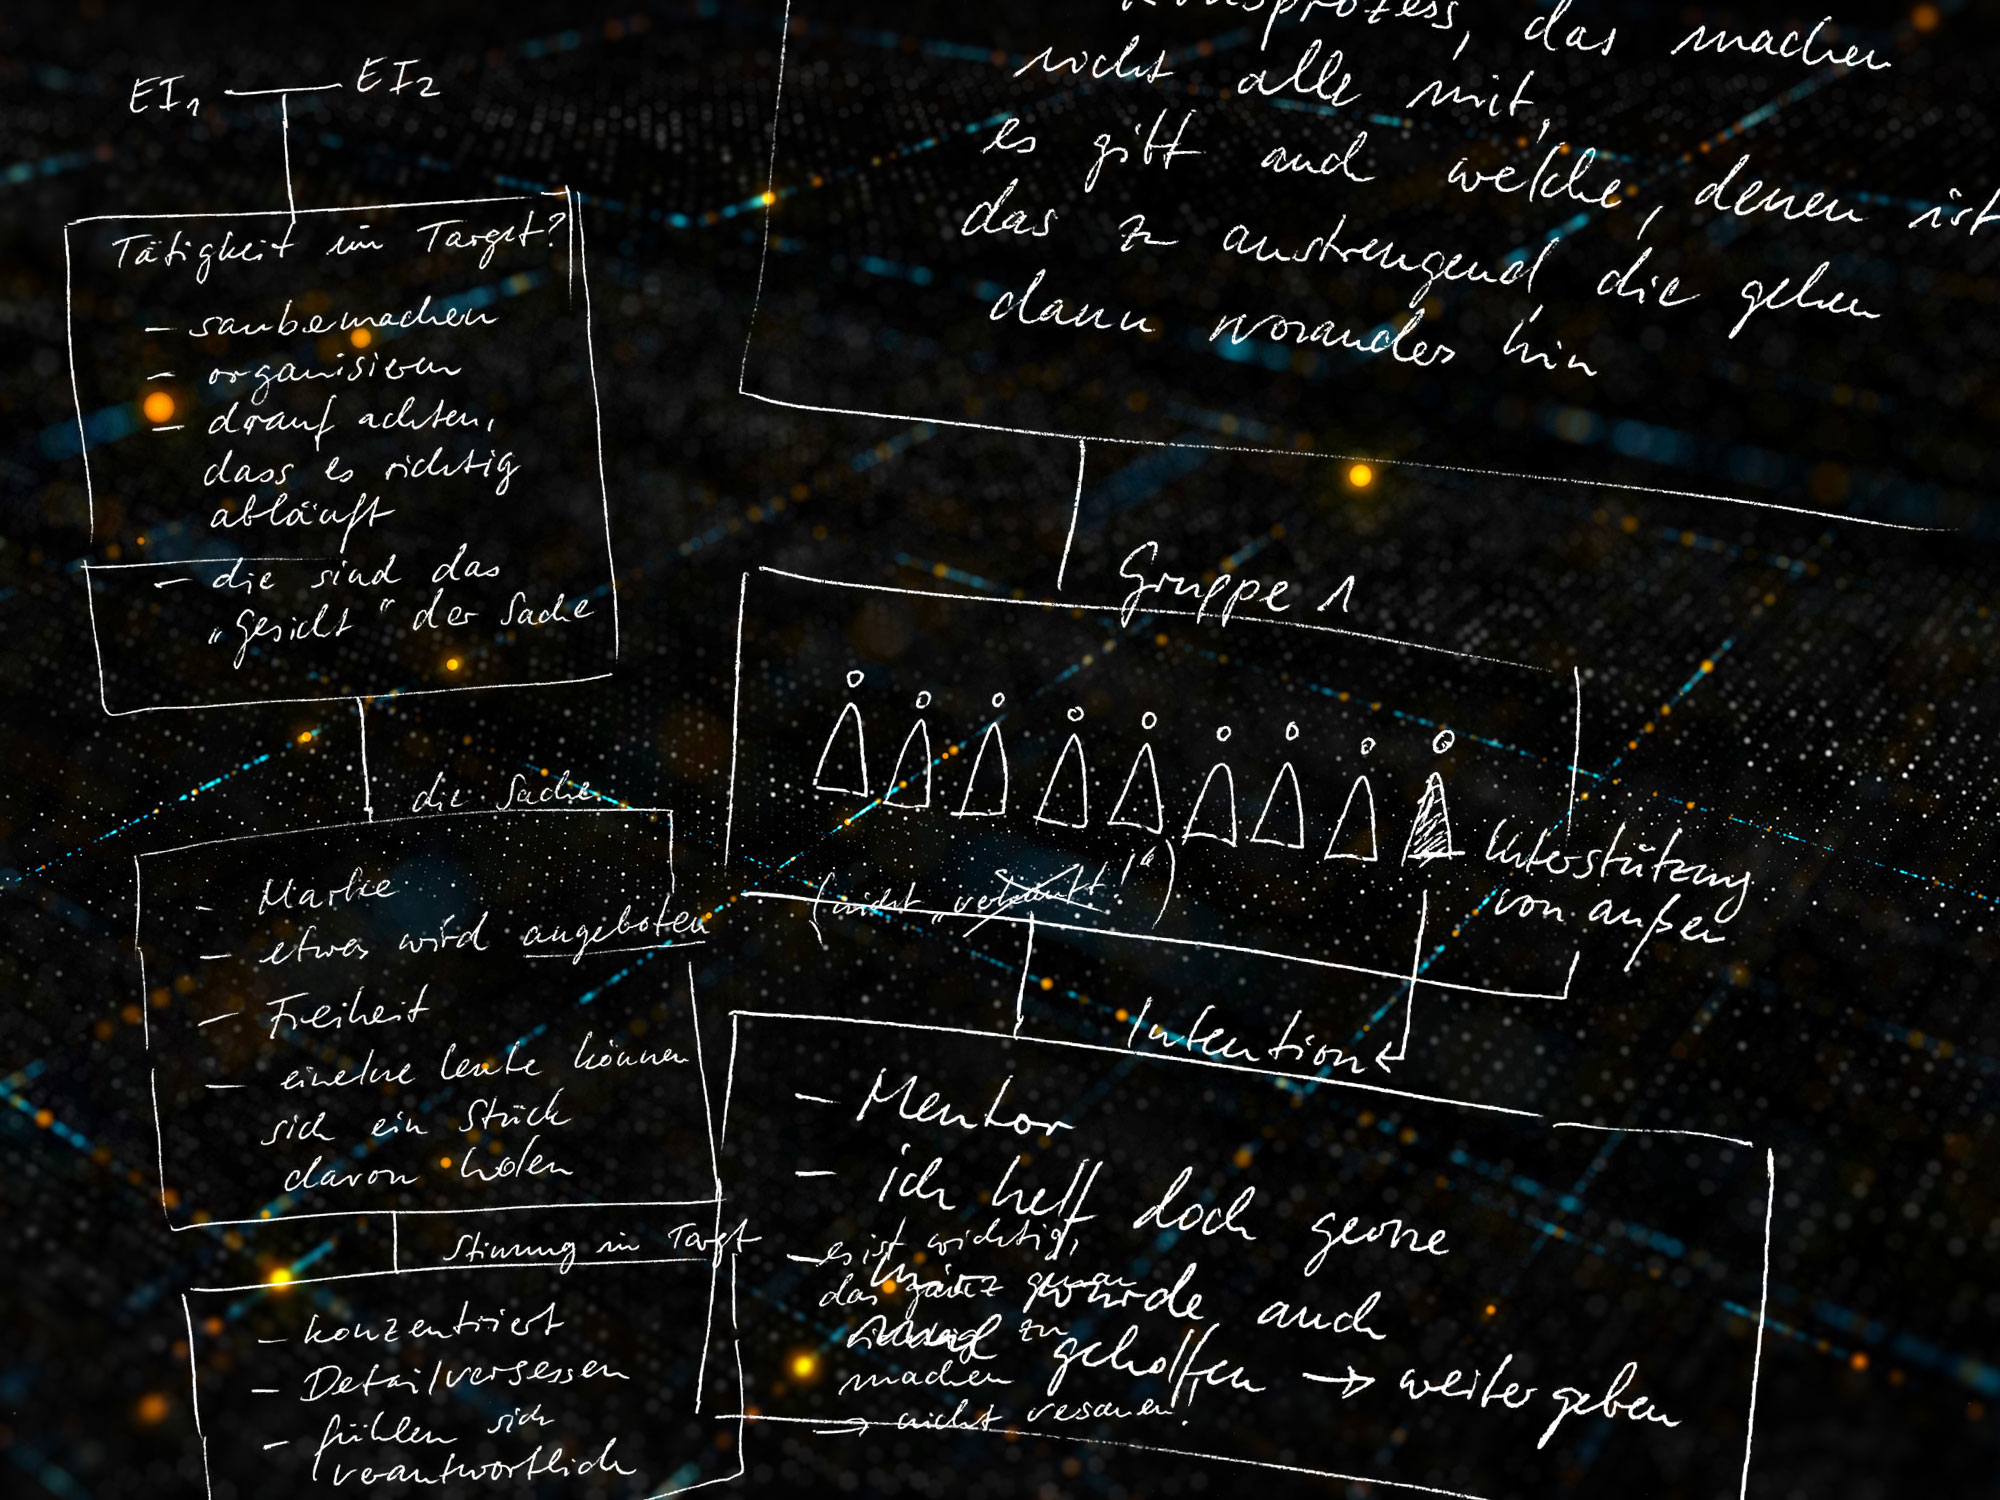 EI1 EI2
Tätigkeit im Target?
- saubermachen
- organisieren
- drauf achten,
dass es richtig
abläuft
- die sind das
"Gesicht" der Sache
die Sache
- Marke
- etwas wird angeboten
- Freiheit
- einzelne Leute können
sich ein Stück
davon holen
Stimmung im Target
- konzentriert
- Detailversessen
- fühlen sich
verantwortlich
das machen
nicht alle mit,
es gibt auch welche, denen ist
das zu anstrengend, die gehen
dann woanders hin
Gruppe 1
Unterstützung
von außen
(nicht "verkauft!")
Intention
- Mentor
- ich helf doch gerne
wurde auch
geholfen → weitergeben
- es ist wichtig,
das ganz genau
zu
machen
→ nicht